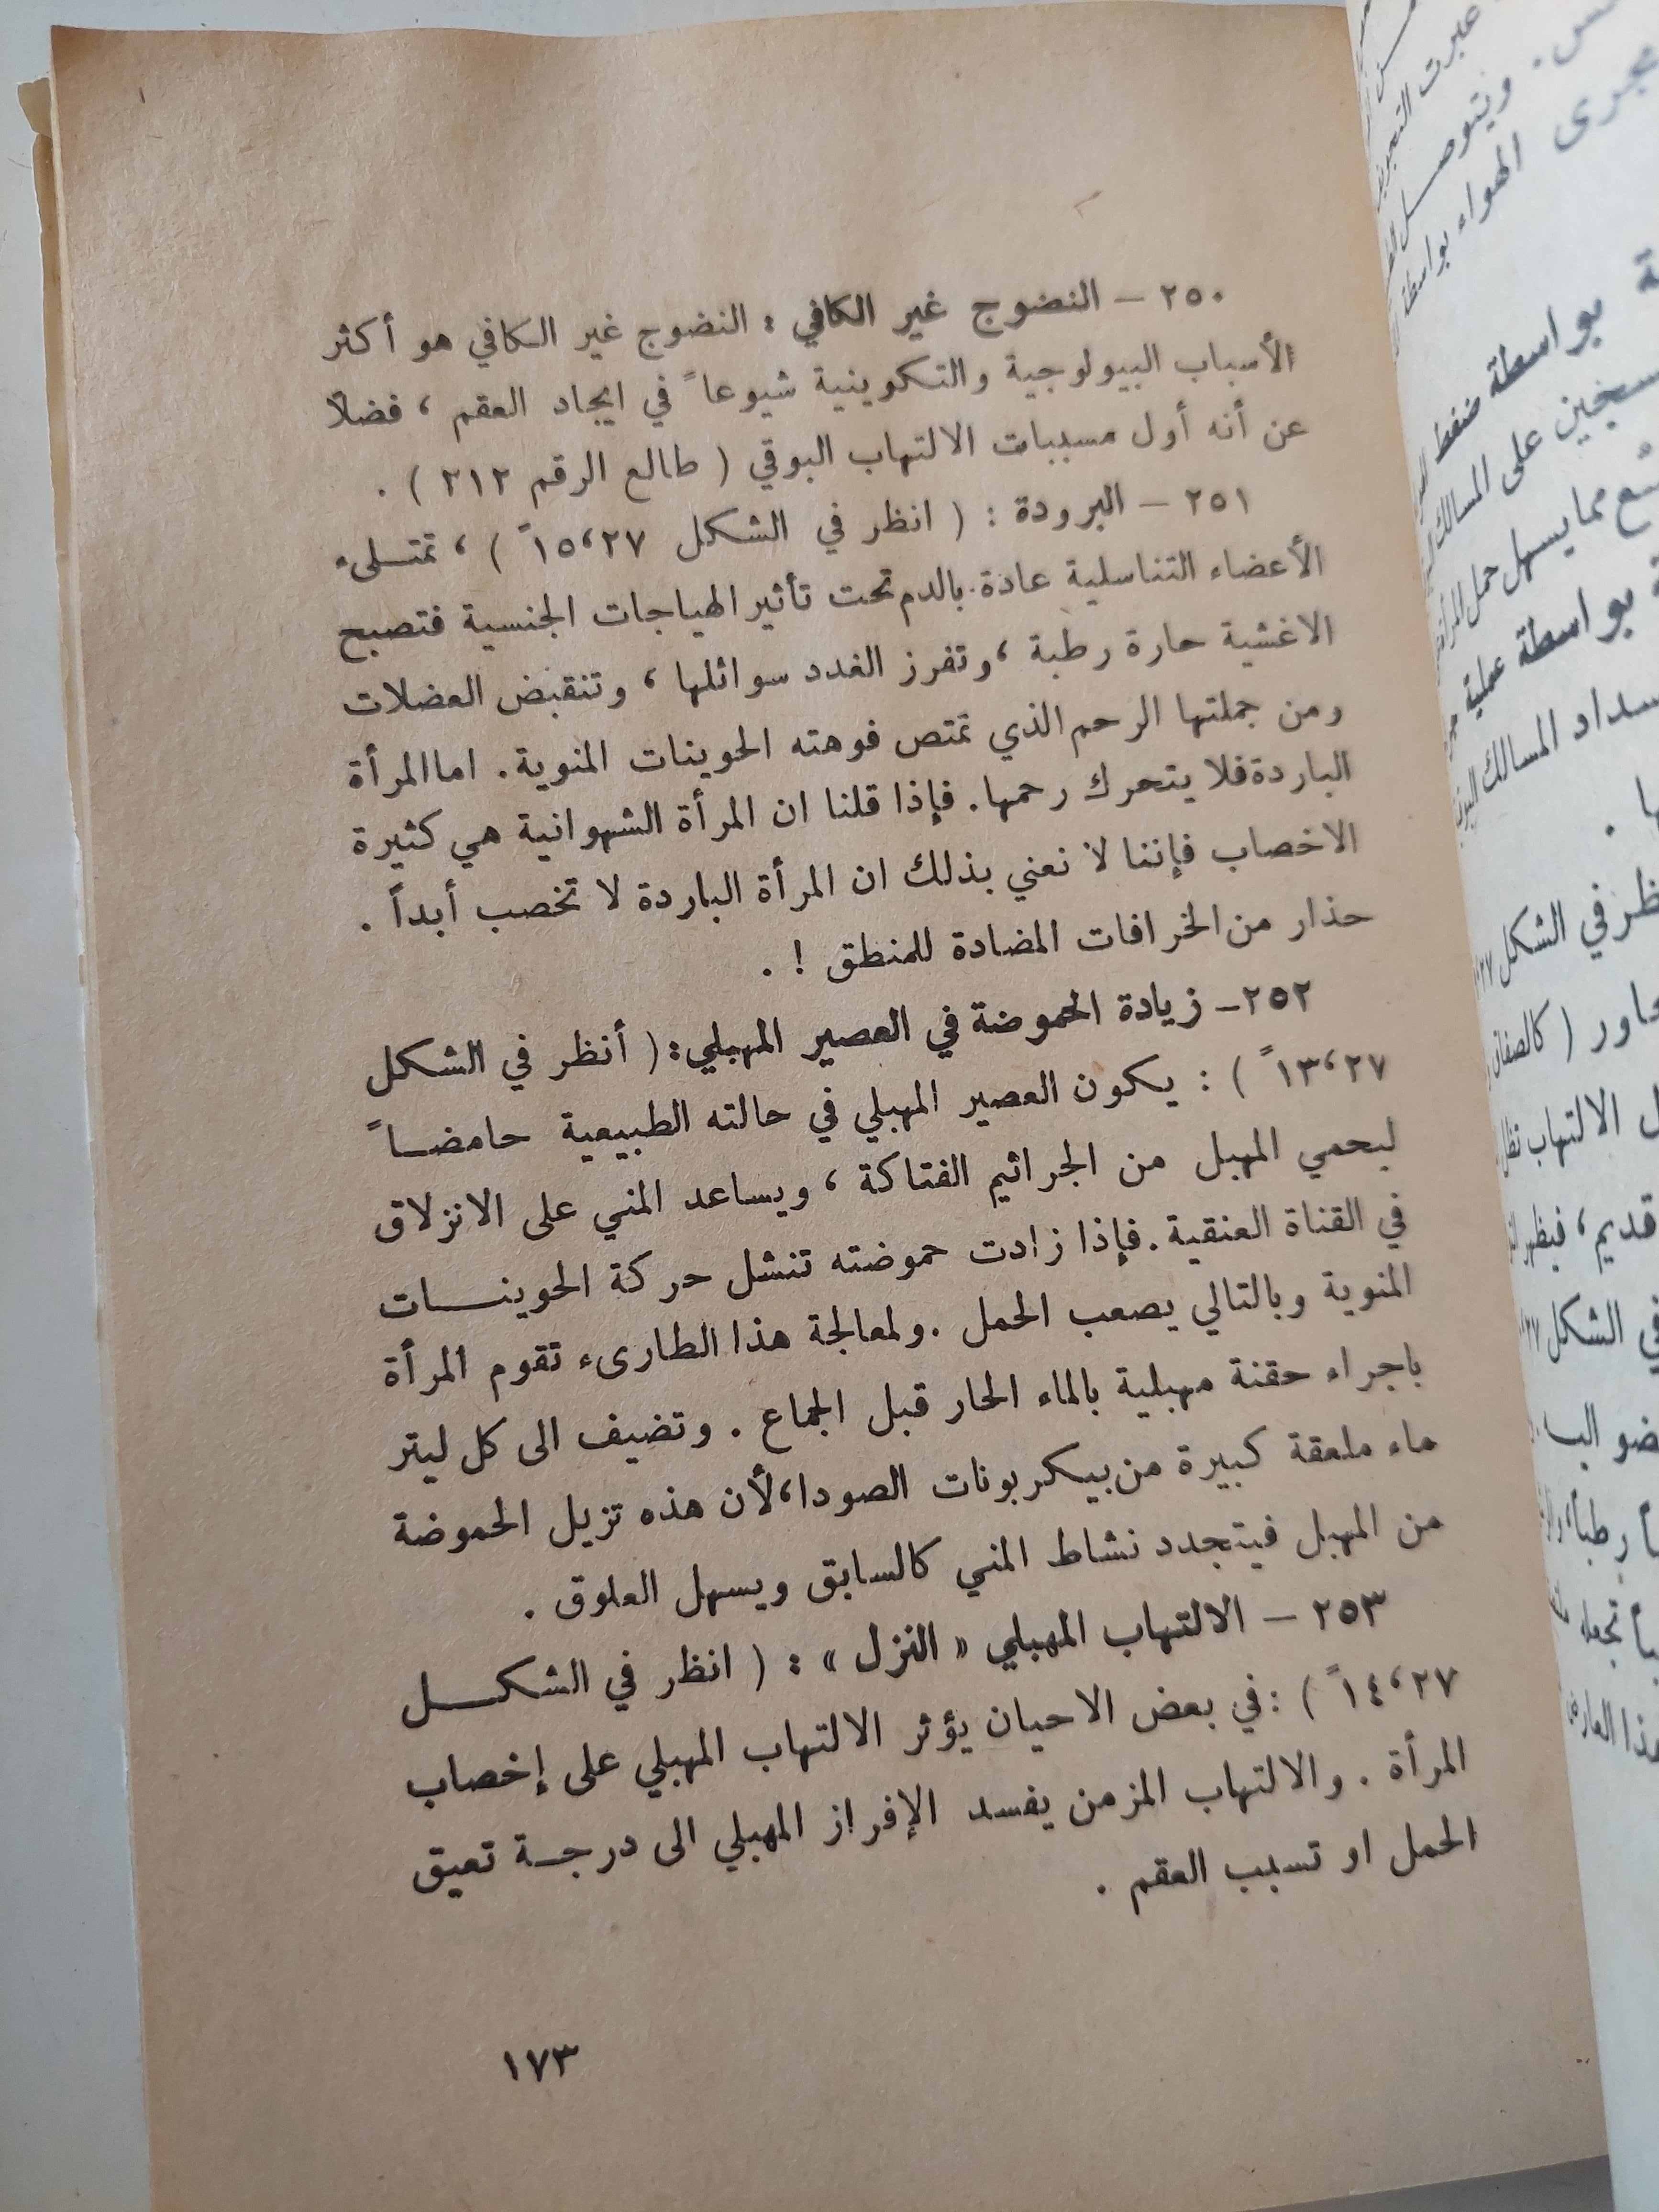 ٢٥٠ — النضوج غير الكافي : النضوج غير الكافي هو أكثر
الأسباب البيولوجية والتكوينية شيوعاً في ايجاد العقم ، فضلاً
عن أنه أول مسببات الالتهاب البوقي ( طالع الرقم ٢١٢ ) .
٢٥١ — البرودة : ( انظر في الشكل ٢٧،١٥ً ) ، تمتـلىء
الأعضاء التناسلية عادة بالدم تحت تأثير الهياجات الجنسية فتصبح
الاغشية حارة رطبة ، وتفرز الغدد سوائلها ، وتنقبض العضلات
ومن جملتها الرحم الذي تمتص فوهته الحوينات المنوية . اما المرأة
الباردة فلا يتحرك رحمها . فإذا قلنا ان المرأة الشهوانية هي كثيرة
الاخصاب فإننا لا نعني بذلك ان المرأة الباردة لا تخصب أبداً .
حذار من الخرافات المضادة للمنطق ! .
٢٥٢ — زيادة الحموضة في العصير المهبلي : ( أنظر في الشكل
٢٧،١٣ً ) : يكون العصير المهبلي في حالته الطبيعية حامضـاً
ليحمي المهبل من الجراثيم الفتاكة ، ويساعد المني على الانزلاق
في القناة العنقية . فإذا زادت حموضته تنشل حركة الحوينـــات
المنوية وبالتالي يصعب الحمل . ولمعالجة هذا الطارىء تقوم المرأة
باجراء حقنة مهبلية بالماء الحار قبل الجماع . وتضيف الى كل ليتر
ماء ملعقة كبيرة من بيكربونات الصودا ، لأن هذه تزيل الحموضة
من المهبل فيتجدد نشاط المني كالسابق ويسهل العلوق .
٢٥٣ — الالتهاب المهبلي « النزل » : ( انظر في الشكـــل
٢٧،١٤ً ) : في بعض الاحيان يؤثر الالتهاب المهبلي على إخصاب
المرأة . والالتهاب المزمن يفسد الإفراز المهبلي الى درجـة تعيق
الحمل او تسبب العقم .
١٧٣
عبرت
ويتوصـــل
مجرى الهواء بواسطة
بواسطة ضغط
على المسالك
مما يسهل حمل المرأة
بواسطة عملية
المسالك
في الشكل
( كالصفاق
الالتهاب
قديم ، فيظهر
في الشكل ٢٧
رطباً
تجعله